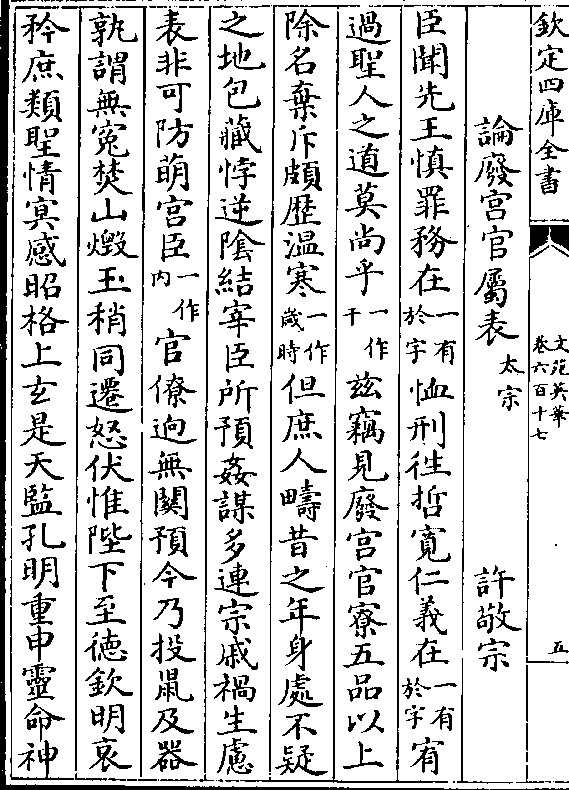 欽定四庫全書
文苑英華
卷六百十七
五
論廢宮官屬表太宗 許敬宗
臣聞先王慎罪務在一有於字恤刑徃哲寛仁義在一有於字宥
過聖人之道莫尚乎一作于兹竊見廢宮官寮五品以上
除名棄斥頗歴温寒一作歳時但庶人疇昔之年身處不疑
之地包藏悖逆隂結宰臣所預姦謀多連宗戚禍生慮
表非可防萌宮臣一作内官僚逈無關預今乃投鼠及器
孰謂無寃焚山燬玉稍同遷怒伏惟陛下至徳欽明哀
矜庶類聖情㝠感昭格上𤣥是天監孔明重申靈命神